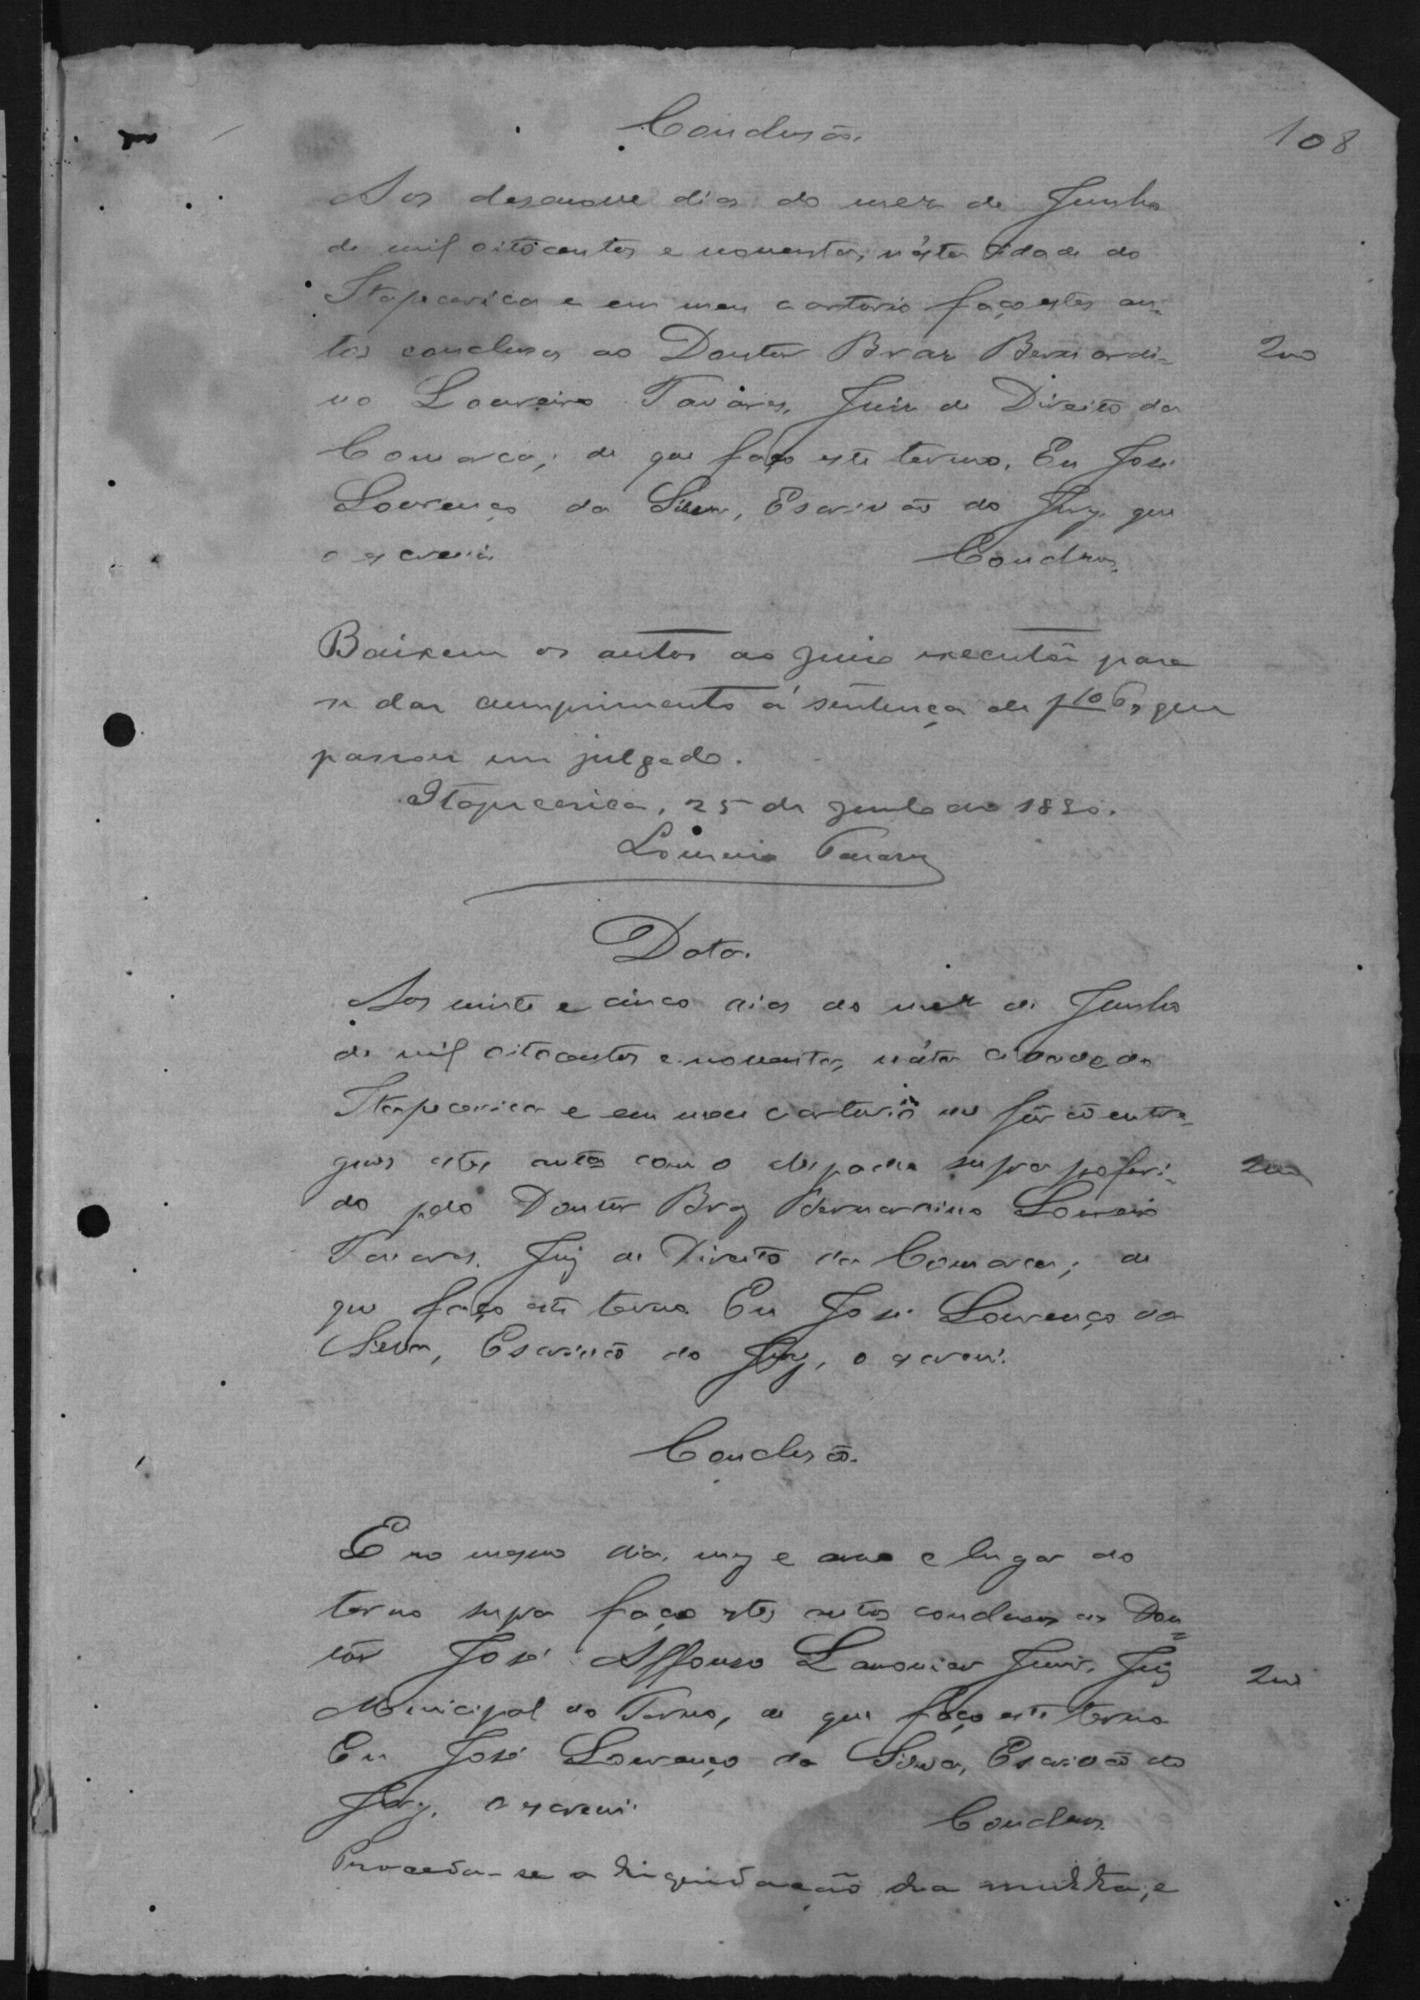 108
Conclusão.
Aos desenove dias do mez de Junho
de mil oitocentos e noventa, n'esta cidade de
Itapecerica e em meu cartorio faço estes au-
tos conclusos ao Doutor Braz Bernardi-
200
no Loureiro Tavares, Juiz de Direito da
Comarca; de que faço este termo. Eu José
Lourenço da Silva, Escrivão do Jury que
o escrevi
Conclusos.
Baixem os autos ao Juizo executôr para
se dar cumprimento á sentença de f 106, que
passou em julgado.
Itapecerica, 25 de Junho de 1890.
Loureiro Tavares
Data.
Aos vinte e cinco dias do mez de Junho
de mil oitocentos e noventa, n'esta cidade de
Itapecerica e em meu cartorio me fôrão entre-
gues estes autos com o despacho supra proferi-
200
do pelo Doutor Braz Bernardino Loureiro
Tavares, Juiz de Direito da Comarca; de
que faço este termo Eu José Lourenço da
Silva, Escrivão do Jury, o escrevi.
Conclusão.
E no mesmo dia, mez e anno e lugar do
termo supra faço estes autos conclusos ao Dou=
tor José Affonso Lamounier Junior, Juiz
200
Municipal do Termo, de que faço este termo
Eu José Lourenço da Silva, Escrivão do
Jury, o escrevi.
Conclusos.
Proceda-se a liquidação da multa, e